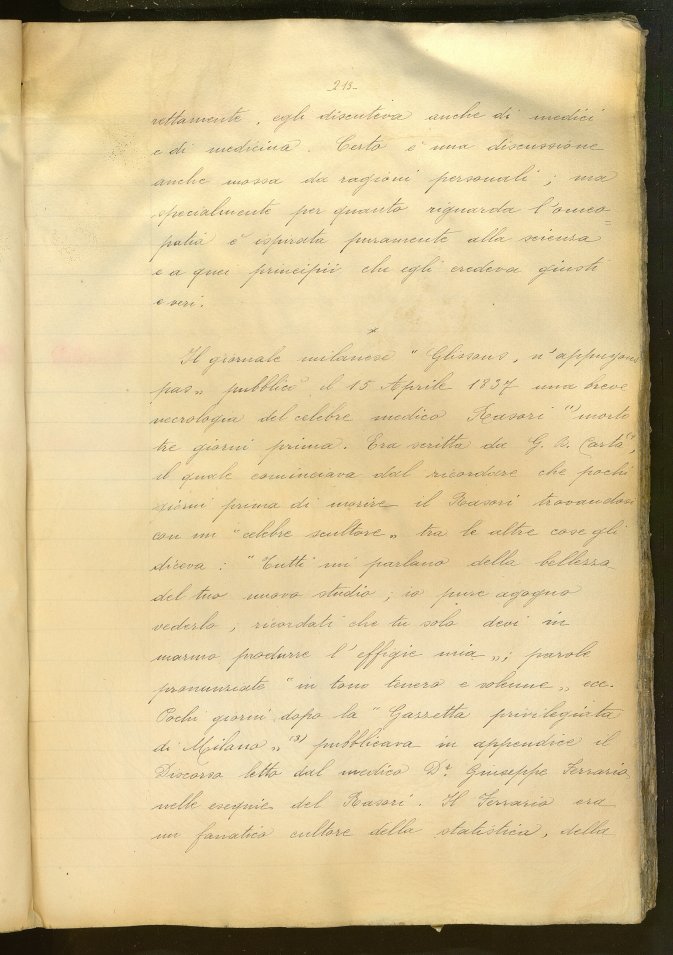 -213-
rettamente, egli discuteva anche di medici
e di medicina. Certo è una discussione
anche mossa da ragioni personali; ma
specialmente per quanto riguarda l'omeo=
patia è ispirata puramente alla scienza
e a quei principii che egli credeva giusti
e veri.
*
Il giornale milanese "Glissons, n'appuyons
pas„ pubblicò il 15 Aprile 1837 una breve
necrologia del celebre medico Rasori (1) morto
tre giorni prima. Era scritta da G. B. Carta (2),
il quale cominciava dal ricordare che pochi
giorni prima di morire il Rasori trovandosi
con un "celebre scultore„ tra le altre cose gli
diceva: "Tutti mi parlano della bellezza
del tuo nuovo studio; io pure agogno
vederlo; ricordati che tu solo devi in
marmo produrre l'effigie mia„; parole
pronunciate "in tono tenero e solenne„ ecc.
Pochi giorni dopo la "Gazzetta privilegiata
di Milano„ (3) pubblicava in appendice il
Discorso letto dal medico Dr. Giuseppe Ferrario
nelle esequie del Rasori. Il Ferrario era
un fanatico cultore della statistica, della